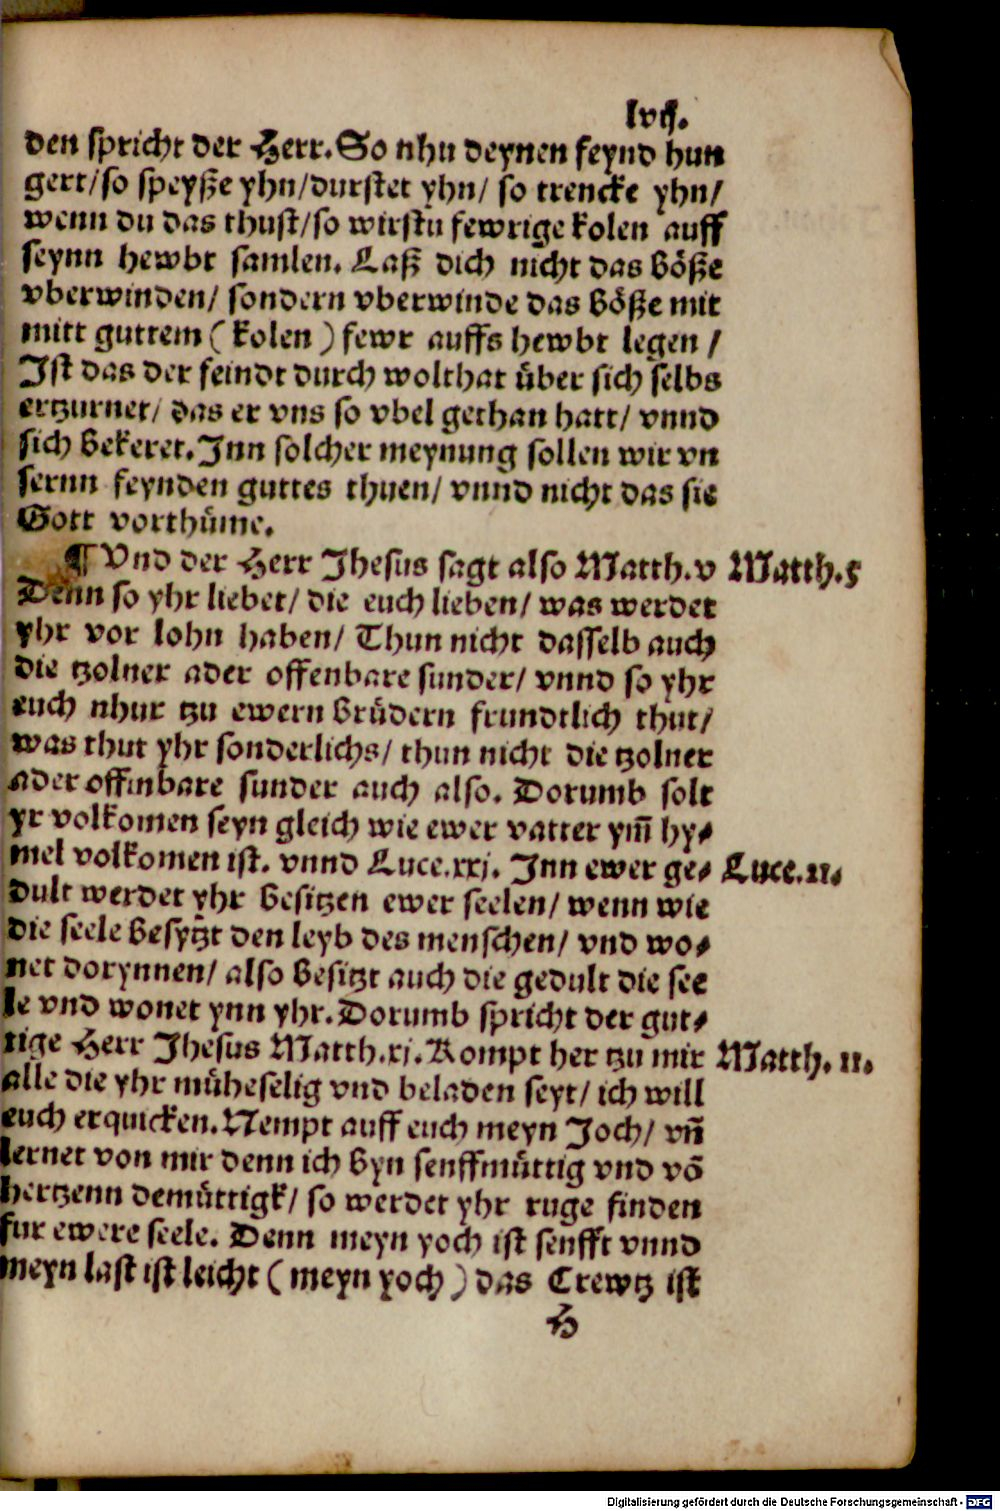 lvij.
den spricht der Herr. So nhu deynen feynd hun
gert/so speyße yhn/durstet yhn/ so trencke yhn/
wenn du das thust/so wirstu fewrige kolen auff
seynn hewbt samlen. Laß dich nicht das böße
vberwinden/ sondern vberwinde das böße mit
mitt guttem ( kolen ) fewr auffs hewbt legen /
Ist das der feindt durch wolthat über sich selbs
ertzurnet/ das er vns so vbel gethan hatt/ vnnd
sich bekeret. Inn solcher meynung sollen wir vn
sernn feynden guttes thuen/ vnnd nicht das sie
Gott vorthüme.
¶ Vnd der Herr Jhesus sagt also Matth.v Matth.5
Denn so yhr liebet/ die euch lieben/ was werdet
yhr vor lohn haben/ Thun nicht dasselb auch
die tzolner ader offenbare sunder/ vnnd so yhr
euch nhur tzu ewern brüdern frundtlich thut/
was thut yhr sonderlichs/ thun nicht die tzolner
ader offinbare sunder auch also. Dorumb solt
yr volkomen seyn gleich wie ewer vatter ym̄ hy⸗
mel volkomen ist. vnnd Luce.xxj. Inn ewer ge⸗ Luce.21.
dult werdet yhr besitzen ewer seelen/ wenn wie
die seele besytzt den leyb des menschen/ vnd wo⸗
net dorynnen/ also besitzt auch die gedult die see
le vnd wonet ynn yhr. Dorumb spricht der gut⸗
tige Herr Jhesus Matth.xj. Kompt her tzu mir Matth. 11.
alle die yhr müheselig vnd beladen seyt/ ich will
euch erquicken. Nempt auff euch meyn Joch/ vn̄
lernet von mir denn ich byn senffmüttig vnd vō
hertzenn demüttigk/ so werdet yhr ruge finden
fur ewere seele. Denn meyn yoch ist senfft vnnd
meyn last ist leicht ( meyn yoch ) das Crewtz ist
H
Digitalisierung gefördert durch die Deutsche Forschungsgemeinschaft - DFG